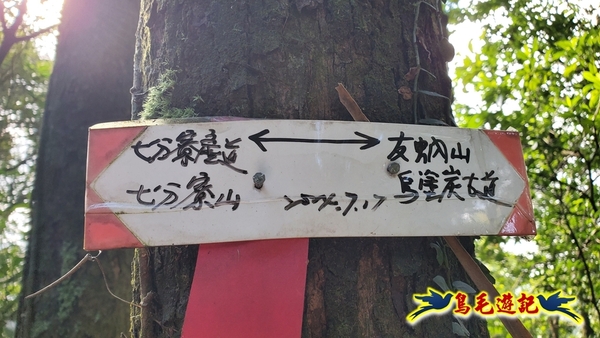 七分寮產道 ←→ 友蚋山
七分寮山 2024.7.17 鳥塗炭古道
鳥毛遊記